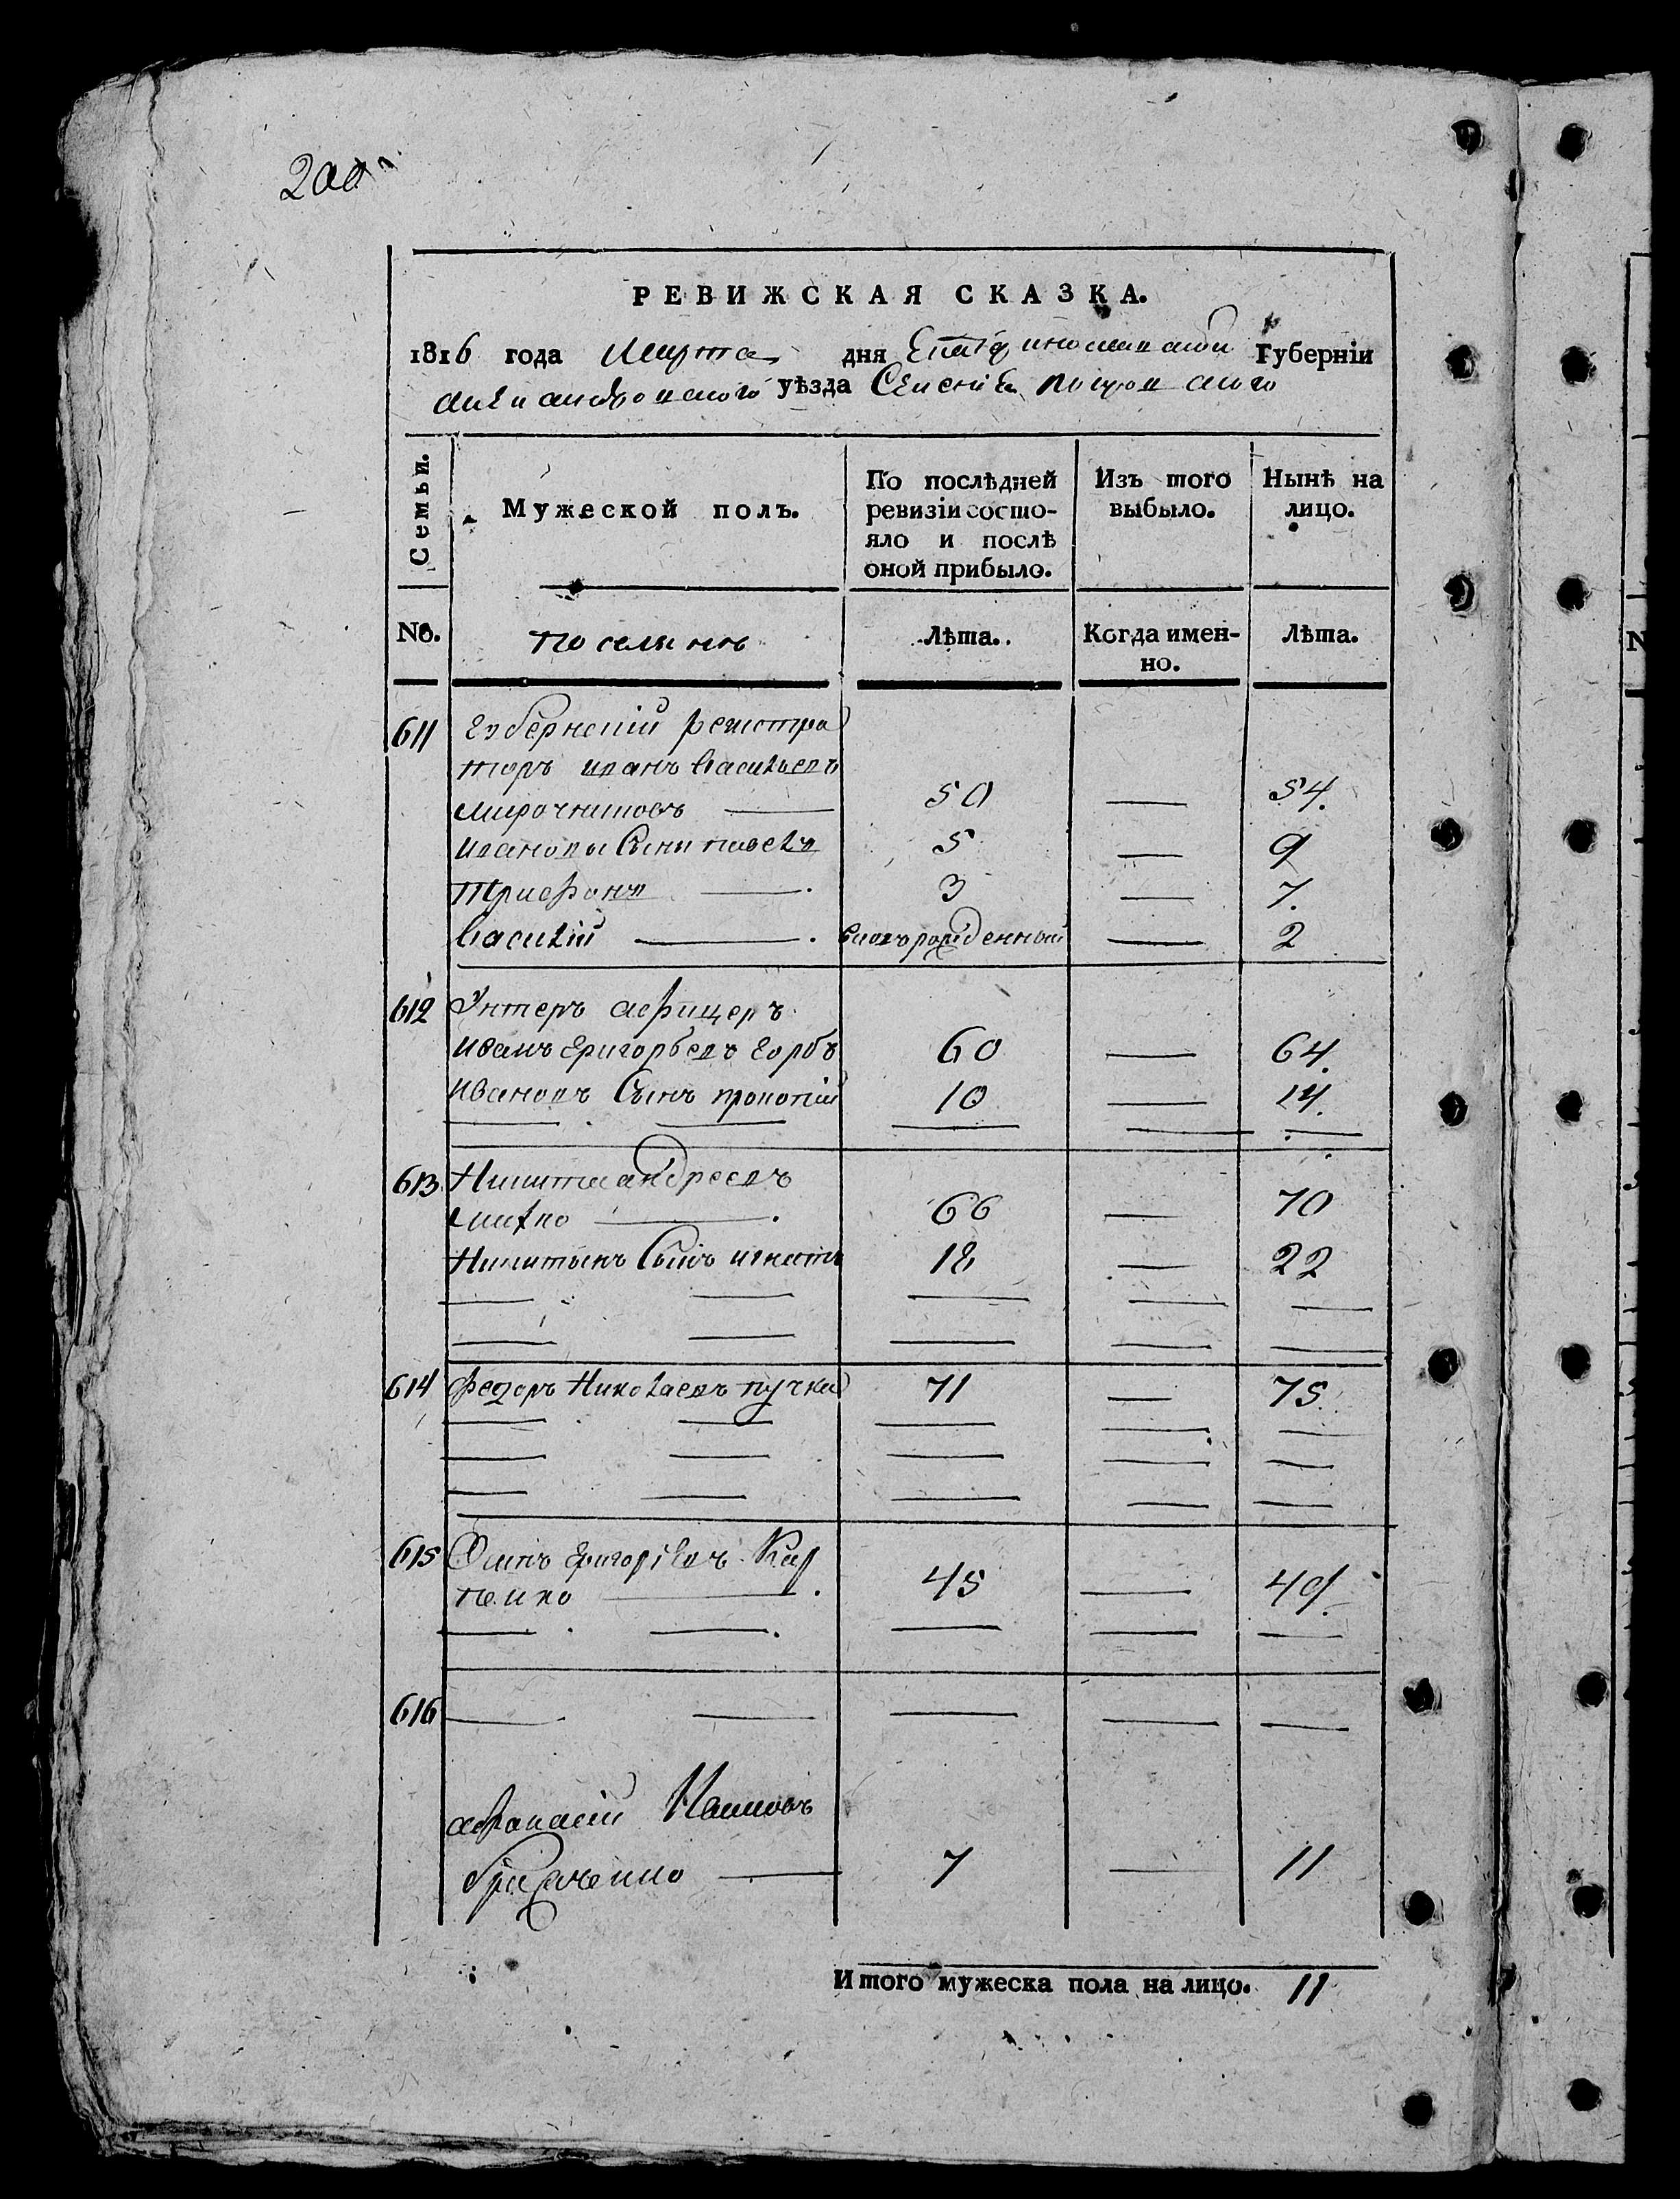 200
РЕВИЖСКАЯ СКАЗКА.
1816 года Марта дня Екатеринославской Губерніи
александровского уѣзда Селенія покровского
Семьи.
Мужеской полъ.
По послѣдней ревизіи состояло и послѣ оной прибыло.
Изъ того выбыло.
Нынѣ на лицо.
No.
поселянъ
Лѣта.
Когда именно.
Лѣта.
611 Губернский регистра
торъ иванъ васильевъ
мирочниковъ — 50 — 54.
ивановы Сыны павелъ 5 — 9
Трифонъ — 3 — 7.
василий — новорожденный — 2
612 Унтеръ афицеръ
иванъ григорьевъ горбъ 60 — 64.
ивановъ Сынъ прокопий 10 — 14.
613 Никита андреевъ
66 — 70
Никитынъ Сынъ игнатъ 18 — 22
614 федоръ Николаевъ пучка 71 — 75
615 григорьевъ Кар
пенко — 45 — 49.
616
афанасий
7 — 11
Итого мужеска пола на лицо. 11